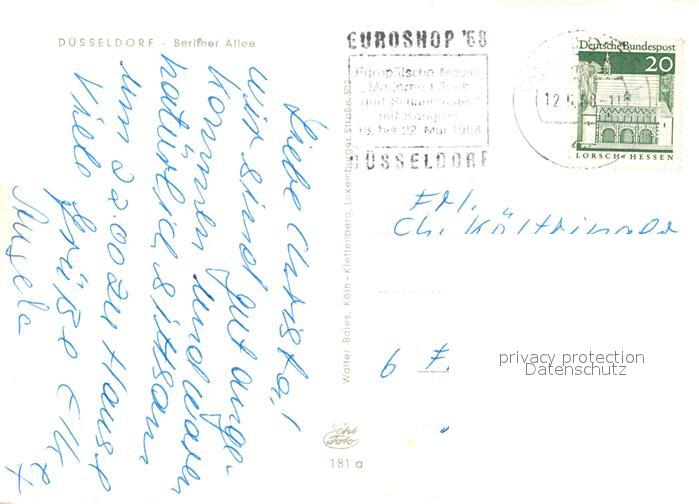 DÜSSELDORF - Berliner Allee
Liebe Christa!
wir sind gut ange-
kommen und waren
natürlich sittsam
um 22.00 zu Hause
Viele Grüße
Angela
Walter Bales, Köln-Klettenberg, Luxemburger Straße
Echt Foto
181 a
EUROSHOP '68
Europäische Messe
Moderne Läden
und Schaufenster
mit Kongreß
18. bis 22. Mai 1968
DÜSSELDORF
Deutsche Bundespost
20
LORSCH/HESSEN
Frl.
Ch.
6 F
privacy protection
Datenschutz